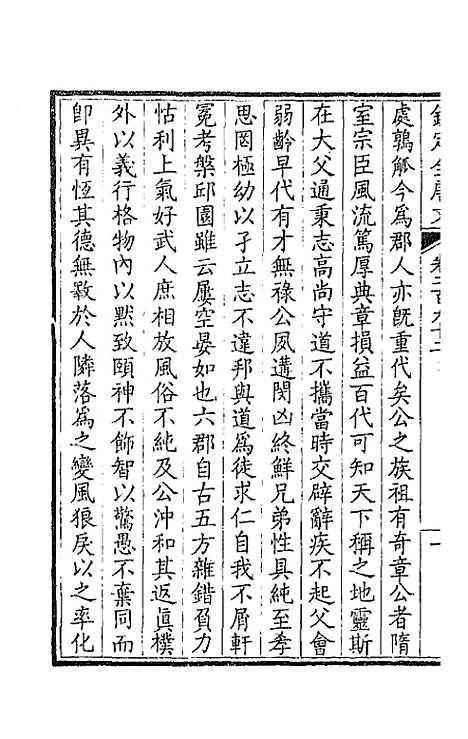 欽定全唐文
卷二百九十二
一
處鶉觚今爲郡人亦旣重代矣公之族祖有奇章公者隋
室宗臣風流篤厚典章損益百代可知天下稱之地靈斯
在大父通秉志高尚守道不攜當時交辟辭疾不起父會
弱齡早代有才無祿公夙遘閔凶終鮮兄弟性具純至孝
思罔極幼以孑立志不違邦與道爲徒求仁自我不屑軒
冕考槃邱園雖云屢空晏如也六郡自古五方雜錯貧力
怙利上氣好武人庶相放風俗不純及公沖和其真返眞樸
外以義行格物內以默致頤神不飾智以驚愚不棄同而
卽異有恆其德無斁於人隣落爲之變風狼戾以之率化